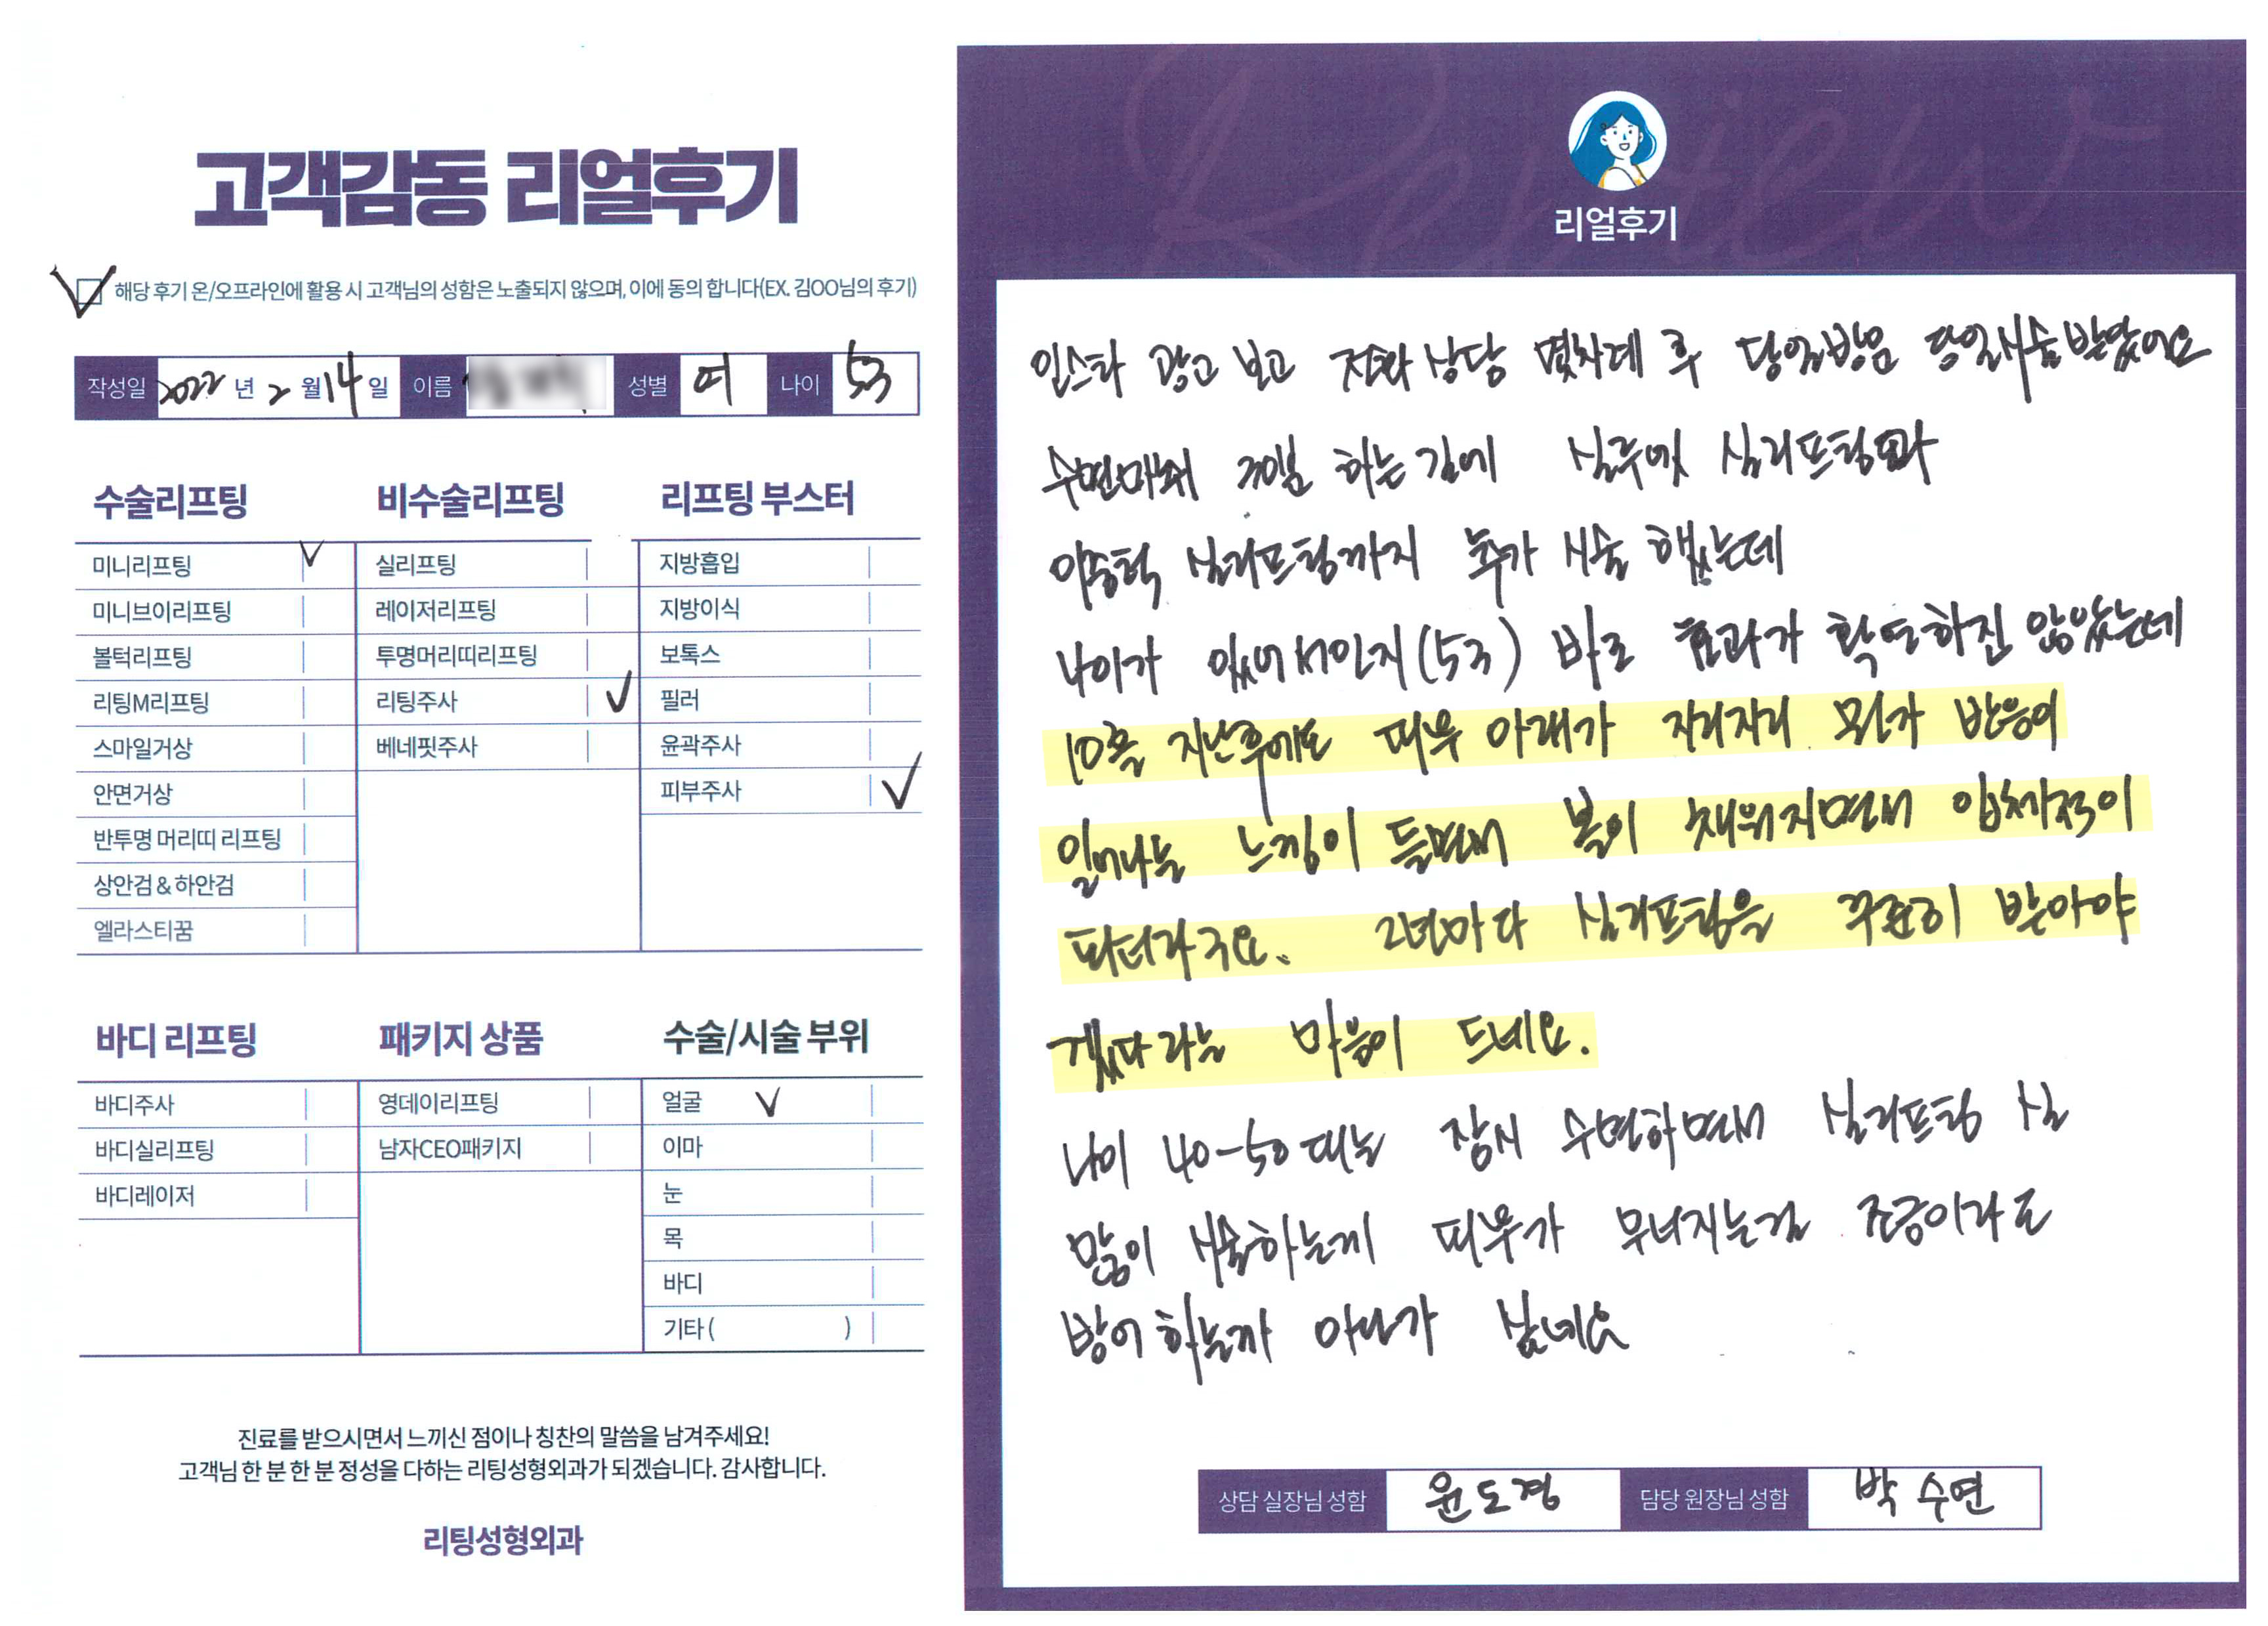 고객감동 리얼후기
해당 후기 온/오프라인에 활용 시 고객님의 성함은 노출되지 않으며, 이에 동의 합니다(EX. 김OO님의 후기)
작성일 2022 년 2 월 14 일 이름 성별 여 나이 53
수술리프팅
미니리프팅
미니브이리프팅
볼턱리프팅
리팅M리프팅
스마일거상
안면거상
반투명 머리띠 리프팅
상안검 & 하안검
엘라스티꿈
비수술리프팅
실리프팅
레이저리프팅
투명머리띠리프팅
리팅주사
베네핏주사
리프팅 부스터
지방흡입
지방이식
보톡스
필러
윤곽주사
피부주사
바디 리프팅
바디주사
바디실리프팅
바디레이저
패키지 상품
영데이리프팅
남자CEO패키지
수술/시술 부위
얼굴
이마
눈
목
바디
기타 ( )
진료를 받으시면서 느끼신 점이나 칭찬의 말씀을 남겨주세요!
고객님 한 분 한 분 정성을 다하는 리팅성형외과가 되겠습니다. 감사합니다.
리팅성형외과
Review
리얼후기
인스타 광고 보고 전화 상담 몇차례 후 당일방문 당일시술 받았어요
수면마취 하는김에 실루엣 실리프팅과
이중턱 실리프팅까지 추가 시술 했는데
나이가 있어서인지(53) 바로 효과가 확연하진 않았는데
10흘 지난후에도 피부 아래가 자리자리 뭔가 반응이
일어나는 느낌이 들면서 볼이 채워지면서 입체적이
되더라구요. 2년마다 실리프팅을 꾸준히 받아야
겠다 라는 마음이 드네요.
나이 40-50대는 잠시 수면하면서 실리프팅 실
많이 시술하는게 피부가 무너지는걸 조금이라도
방어 하는까 아닌가 싶네요
상담 실장님 성함 윤도경 담당 원장님 성함 박수연